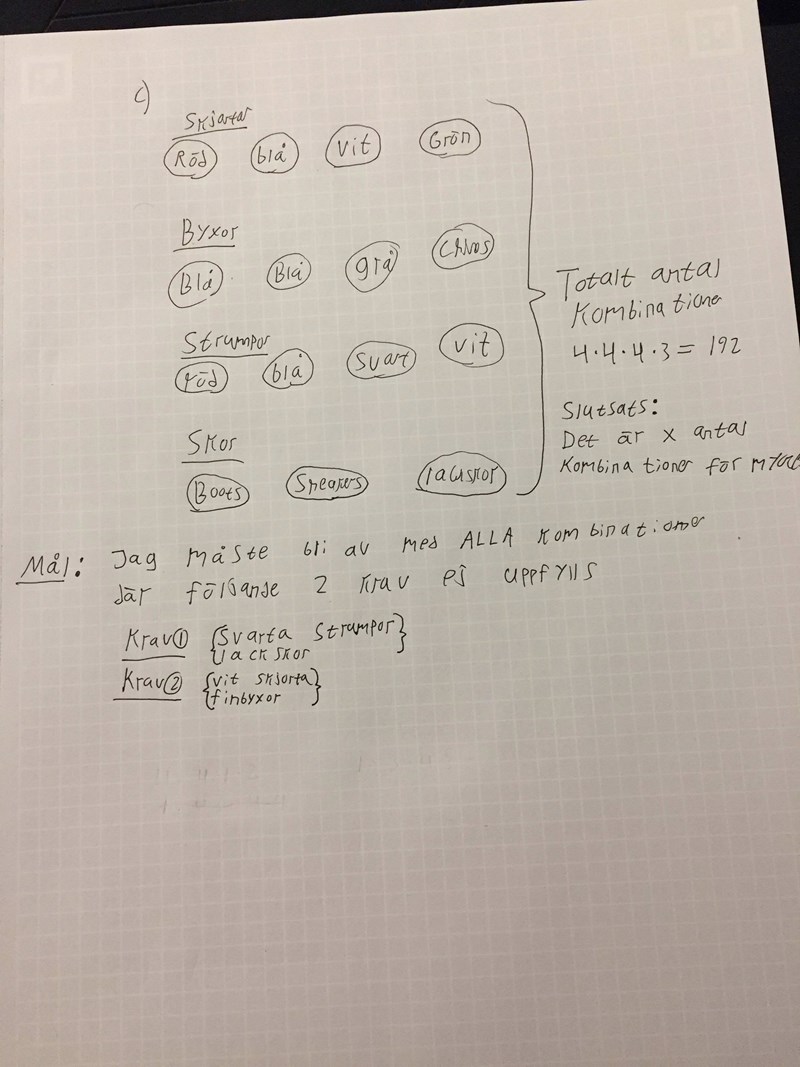 c)
Skjortor
Röd blå vit Grön
Byxor
Blå Blå grå Chinos
Strumpor
röd blå svart vit
Skor
Boots Sneakers lackskor
Totalt antal
Kombinationer
4·4·4·3 = 192
Slutsats:
Det är x antal
Kombinationer för
Mål: Jag måste bli av med ALLA kombinationer
där följande 2 krav ej uppfylls
Krav① {Svarta strumpor}
lackskor
Krav② {vit skjorta}
finbyxor